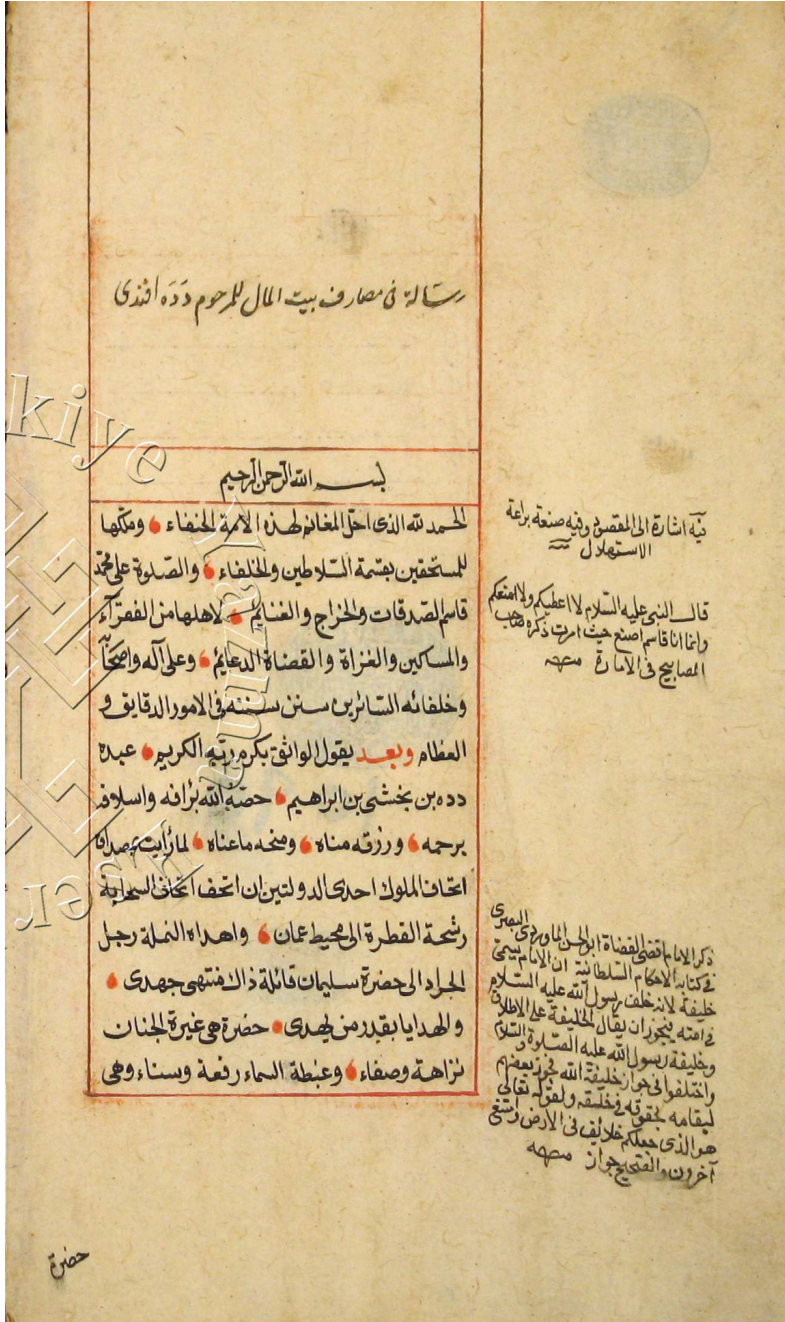 رسالة فى مصارف بيت المال للمرحوم دده افندى
بسم الله الرحمن الرحيم
الحمد لله الذى احل المغانم لهذه الامة الحنفاء وملكها
للمستحقين بقسمة السلاطين والخلفاء والصلوة على محمد
قاسم الصدقات والخراج والغنايم لاهلها من الفقرآء
والمساكين والغزاة والقضاة الدعايم وعلى آله واصحابه
وخلفائه السائرين سنن سننه فى الامور الدقايق و
العظام وبعد يقول الواثق بكرم ربه الكريم عبده
دده بن بخشى بن ابراهيم حصه الله برافه واسلافه
برحمه ورزقه مناه ومنحه ماعناه لما رأيت
اتحاف الملوك احدى الدولتين ان اتحف اتحاف السحابة
رشحة القطرة الى محيط عمان واهداه النملة رجل
الجراد الى حضرة سليمان قائلة ذاك منتهى جهدى
والهدايا بقدر من يهدى حضرة هى غيرة الجنان
نزاهة وصفاء وغبطة السماء رفعة وسناء وهى
حضرة
فيه اشارة الى المقصود وفيه صنعة براعة
الاستهلال
قال النبى عليه السلام لا اعطيكم ولا امنعكم
وانما انا قاسم اضع حيث امرت ذكره صاحب
المصابيح فى الامارة منهه
ذكر الامام اقضى القضاة ابو الحسن الماوردى البصرى
فى كتابه الاحكام السلطانية ان الامام يسمى
خليفة لانه خلف رسول الله عليه السلام
فى امته فيجوز ان يقال الخليفة على الاطلاق
وخليفة رسول الله عليه الصلوة والسلام
واختلفوا فى جواز خليفة الله فجوز بعضهم
لبقامه بحقوقه فى خليقته ولقوله تعالى
هو الذى جعلكم خلائف فى الارض
آخرون جواز منهه
Türkiye
Yazma
Eser